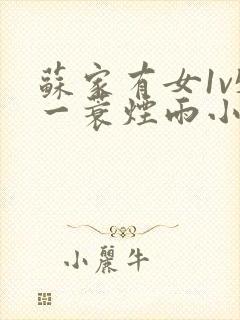 蘇家有女1v
一蓑煙雨小
小麗牛